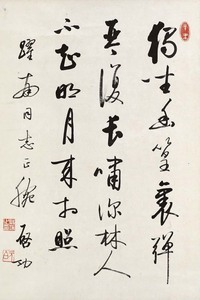 獨坐幽篁裏彈
琴復長嘯深林人
不知明月来相照
同志正腕
啓功